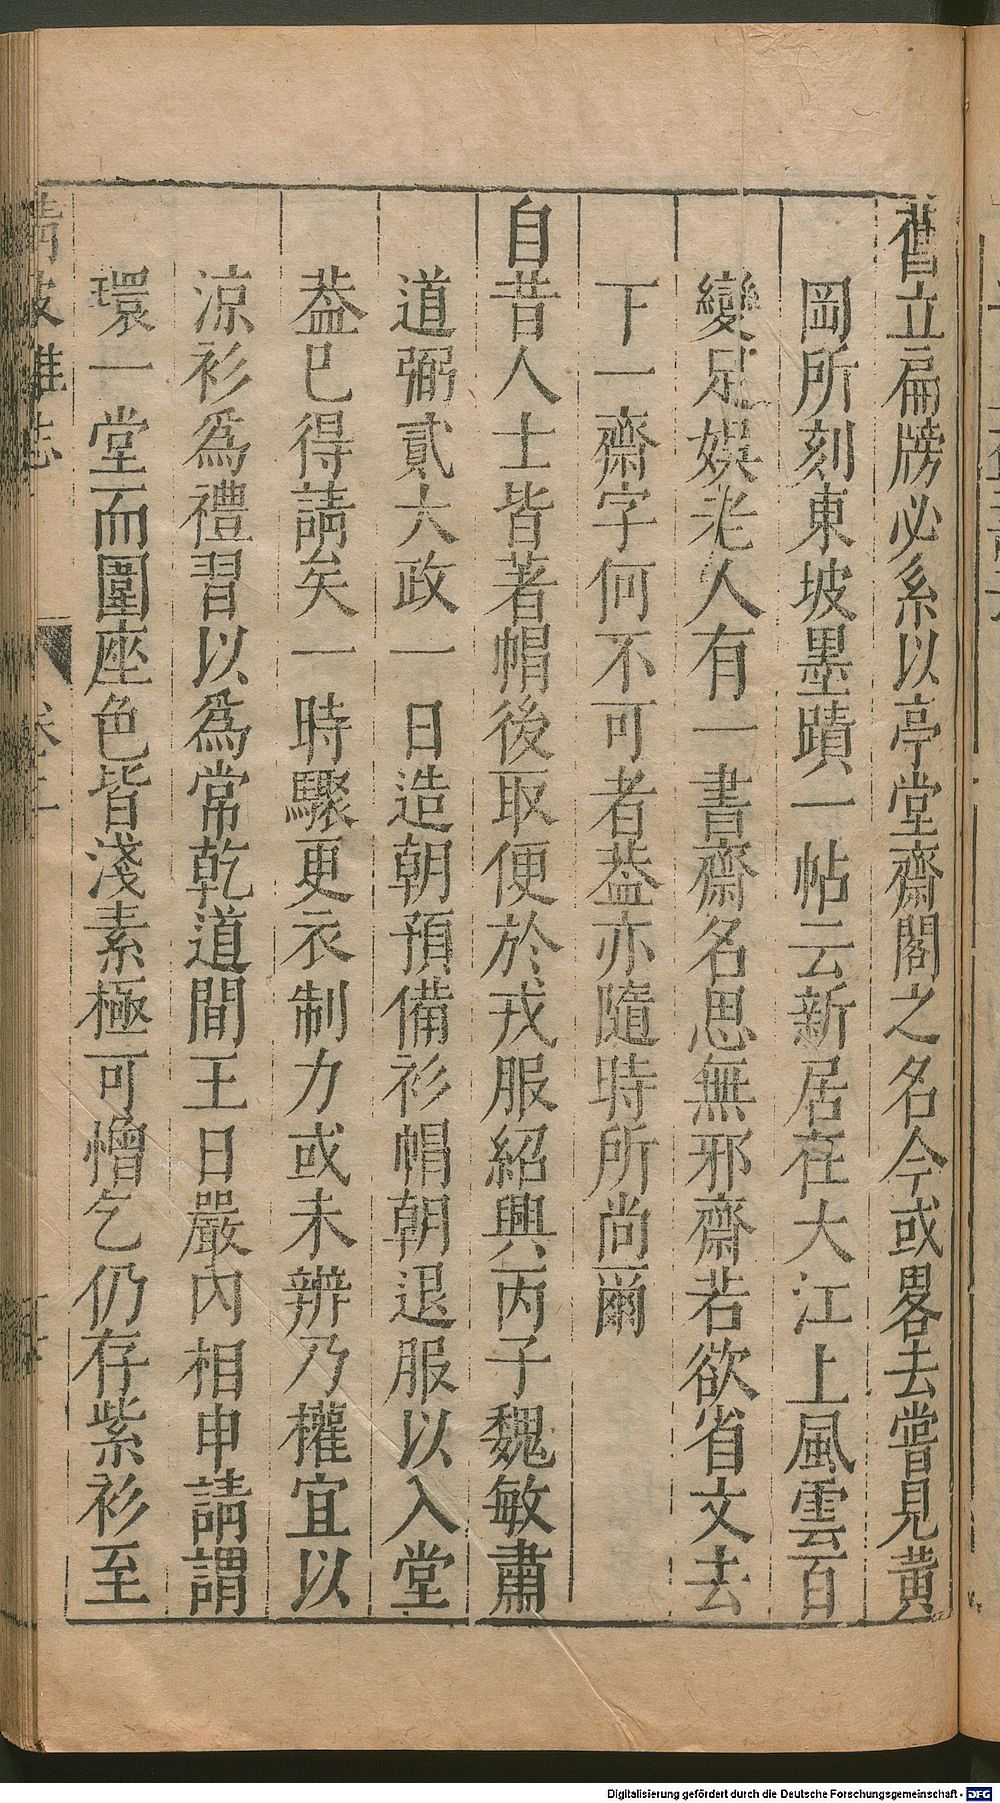 舊立扁牓必系以亭堂齋閣之名今或畧去嘗見黃
岡所刻東坡墨蹟一帖云新居在大江上風雲百
變足娛老人有一書齋名思無邪齋若欲省文去
下一齋字何不可者葢亦隨時所尚爾
自昔人士皆著帽後取便於戎服紹興丙子魏敏肅
道弼貳大政一日造朝預備衫帽朝退服以入堂
葢已得請矣一時驟更衣制力或未辨乃權宜以
涼衫爲禮習以爲常乾道間王日嚴內相申請謂
環一堂而圍座色皆淺素極可憎乞仍存紫衫至
清波雜志
卷二
Digitalisierung gefördert durch die Deutsche Forschungsgemeinschaft - DFG